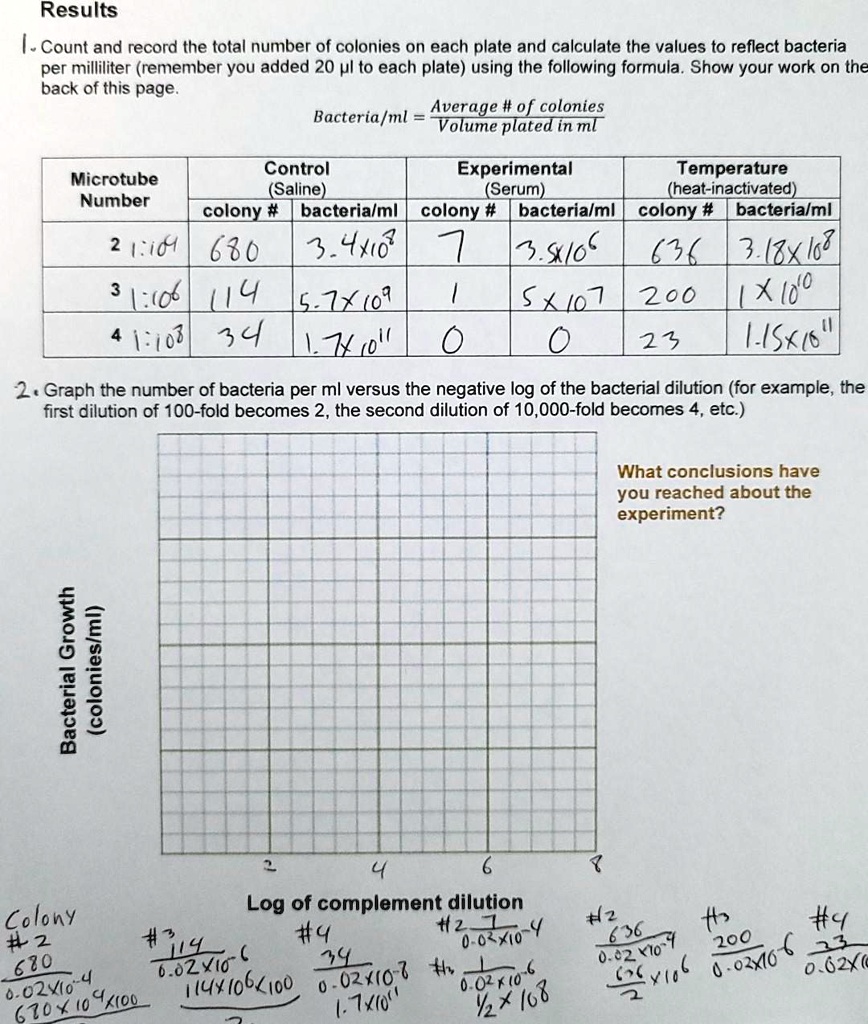 Results
1. Count and record the total number of colonies on each plate and calculate the values to reflect bacteria
per milliliter (remember you added 20 µl to each plate) using the following formula. Show your work on the
back of this page.
Bacteria/ml = Average # of colonies / Volume plated in ml
Microtube Number | Control (Saline) | Experimental (Serum) | Temperature (heat-inactivated)
colony # | bacteria/ml | colony # | bacteria/ml | colony # | bacteria/ml
2 1:10^4 | 680 | 3.4x10^8 | 7 | 3.5x10^6 | 636 | 3.18x10^8
3 1:10^6 | 114 | 5.7x10^9 | 1 | 5x10^7 | 200 | 1x10^10
4 1:10^8 | 34 | 1.7x10^11 | 0 | 0 | 23 | 1.15x10^11
2. Graph the number of bacteria per ml versus the negative log of the bacterial dilution (for example, the
first dilution of 100-fold becomes 2, the second dilution of 10,000-fold becomes 4, etc.)
What conclusions have
you reached about the
experiment?
Bacterial Growth
(colonies/ml)
2 4 6 8
Log of complement dilution
Colony
#2
680
0.02x10^-4
680x10^4x100
#3
114
0.02x10^-6
114x10^6x100
#4
34
0.02x10^-8
1.7x10^11
#2 7
0.02x10^-4
#3 1
0.02x10^-6
1/2 x 10^8
#2
636
0.02x10^-4
636/2 x10^6
#3
200
0.02x10^-6
#4
23